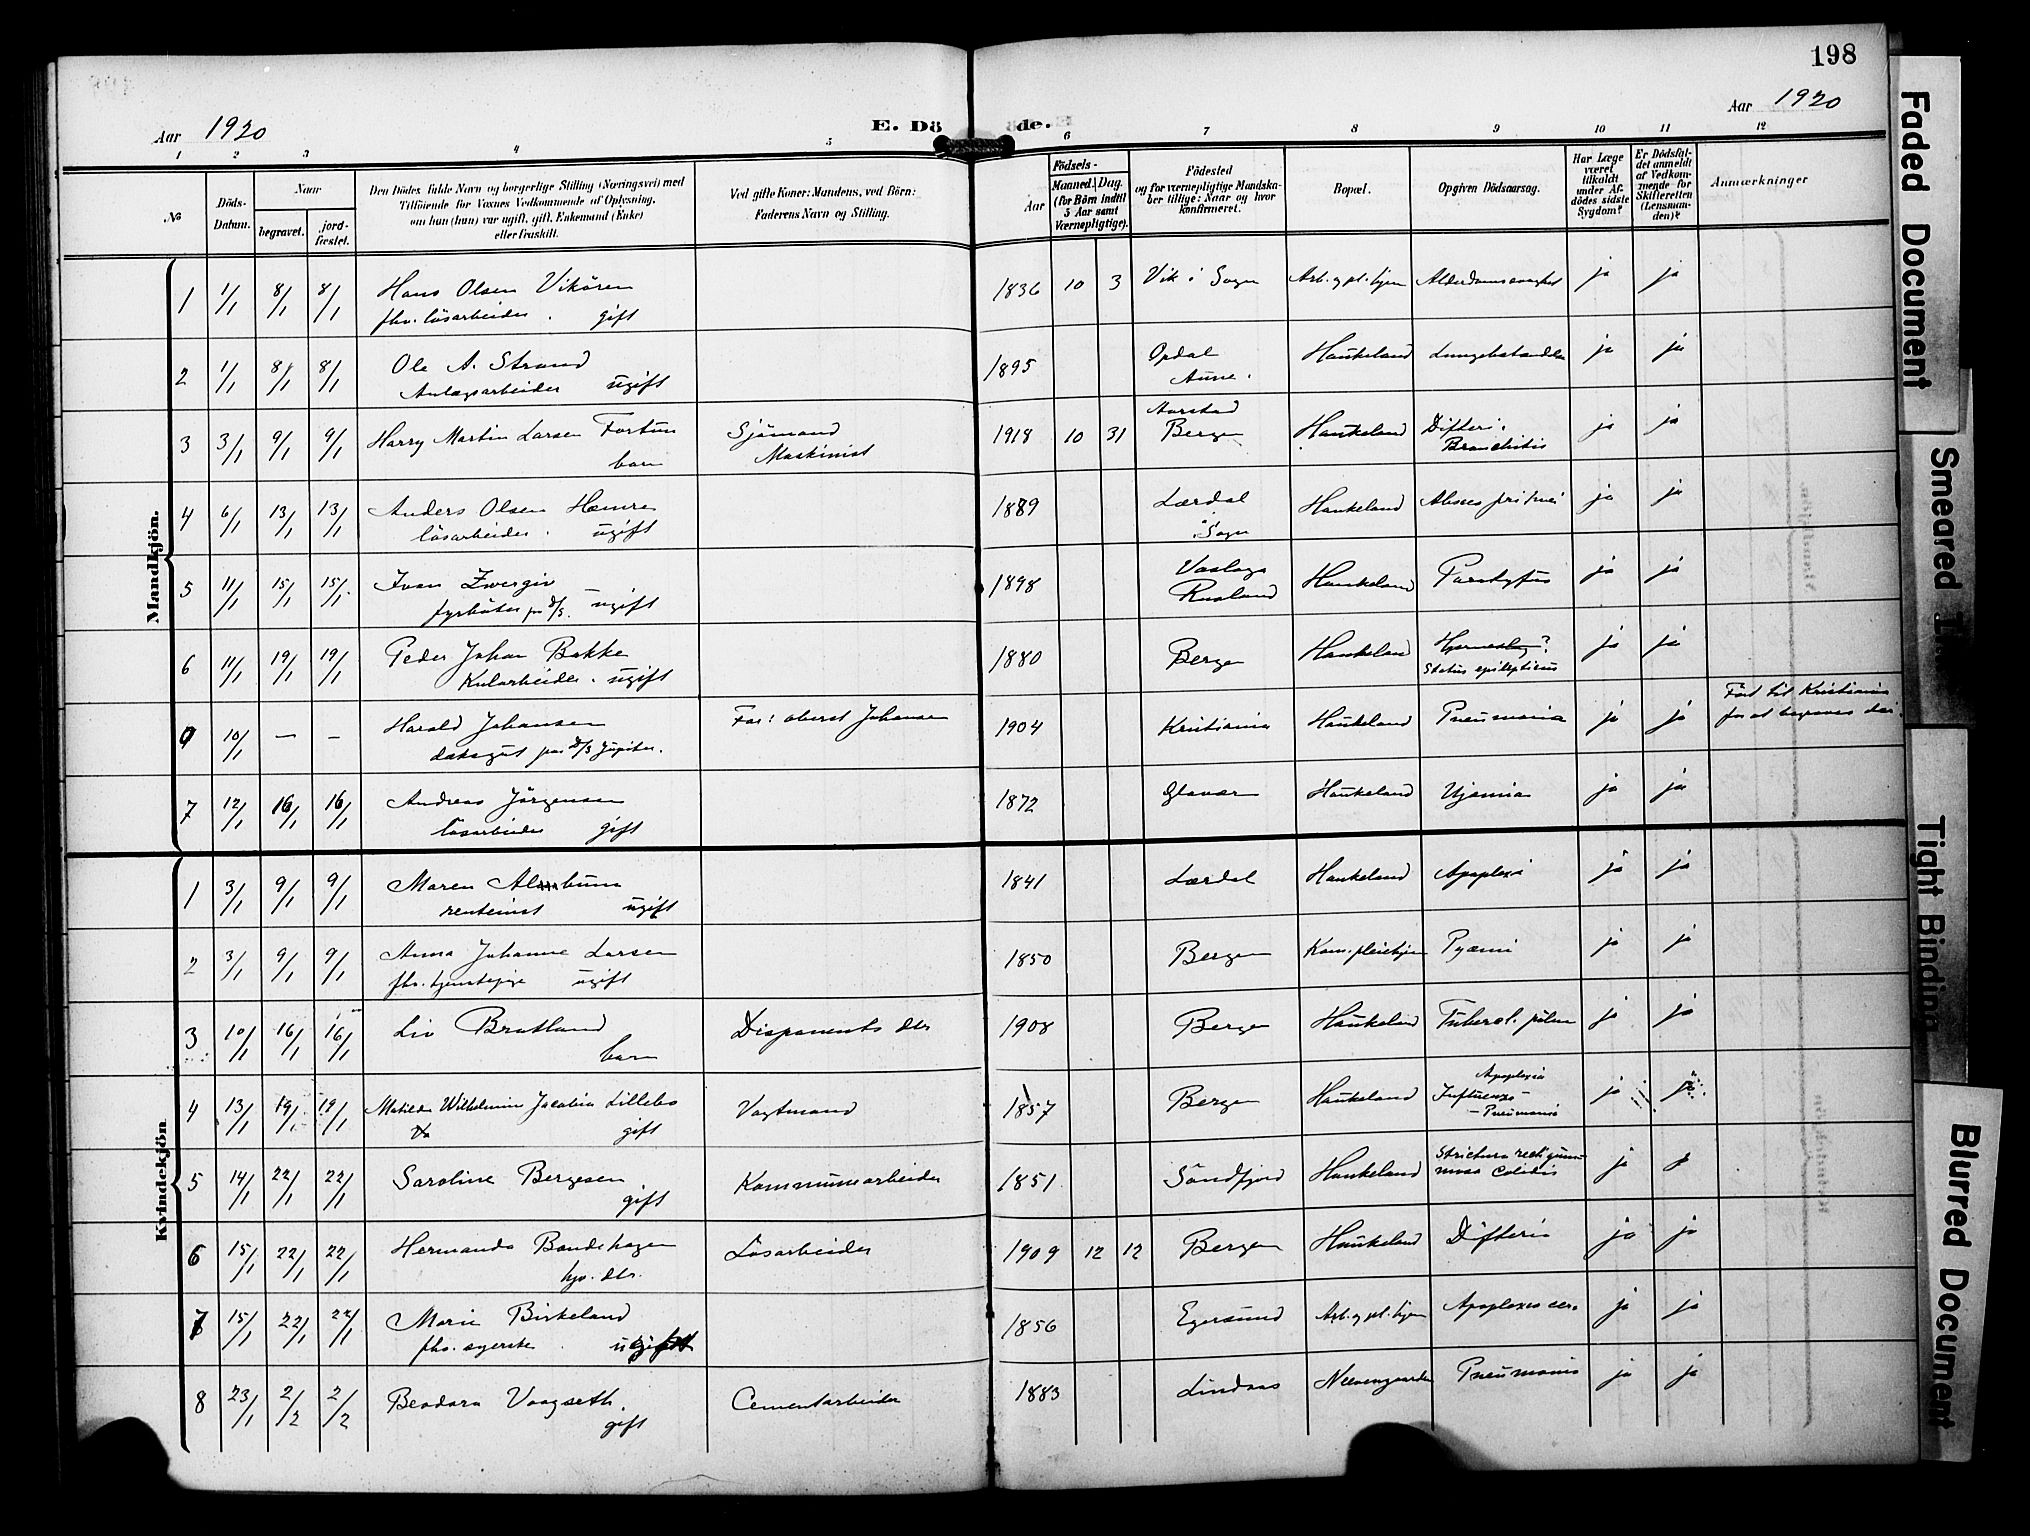 198
Aar 1920
E. Döde.
Aar 1920
1 2 3 4 5 6 7 8 9 10 11 12
No
Döds-Datum.
Naar
begravet.
jordfæstet.
Den Dödes fulde Navn og borgerlige Stilling (Næringsvei) med
Tilföiende for Voxnes Vedkommende af Oplysning,
om han (hun) var ugift, gift, Enkemand (Enke)
eller fraskilt.
Ved gifte Koner: Mandens, ved Börn:
Faderens Navn og Stilling.
Födsels-
Aar
Maaned. Dag.
(for Börn indtil
5 Aar samt
Værnepligtige).
Födested
og for værnepligtige Mandska-
ber tillige: Naar og hvor
konfirmeret.
Bopæl.
Opgiven Dödsaarsag.
Har Læge
været
tilkaldt
under Af-
dödes sidste
Sygdom?
Er Dödsfal-
det anmeldt
af Vedkom-
mende for
Skifteretten
(Lensman-
den)?
Anmærkninger
Mandkjön.
1 1/1 8/1 8/1 Hans Olsen Vikören 1836 10 3 Vik i Sogn Arb. og pl. hjem Alderdomssvaghet ja ja
fhv. lösarbeider. gift
2 1/1 8/1 8/1 Ole A. Strand 1895 Opdal Haukeland ja ja
Anlægsarbeider ugift Aune.
3 3/1 9/1 9/1 Harry Martin Larsen Fortun Sjömand 1918 10 31 Aarstad Bergen Haukeland Difteri. ja ja
barn Maskinist Bronchitis
4 6/1 13/1 13/1 Anders Olsen Hamre 1889 Lærdal Haukeland ja ja
lösarbeider. ugift i Sogn
5 11/1 15/1 15/1 Ivan Zvergiv 1898 Haukeland Paratyfus ja ja
fyrböter paa D/S. ugift Rusland
6 11/1 19/1 19/1 Peder Johan Bakke 1880 Bergen Haukeland Hjerneslag? ja ja
Kularbeider. ugift Status epilepticus
10/1 — — Harald Johansen Far: oberst Johansen 1904 Kristiania Haukeland Pneumonia ja ja Fört til Kristiania
daksgut paa D/S Jupiter. for at begraves der.
7 12/1 16/1 16/1 Andreas Jörgensen 1872 Haukeland ja ja
lösarbeider gift
Kvindekjön
1 3/1 9/1 9/1 Maren 1841 Lærdal Haukeland Apoplexi ja ja
rentenist ugift
2 3/1 9/1 9/1 Anna Johanne Larsen 1850 Bergen Kom. pleiehjem Pyæmi ja ja
fhv. tjenestepige ugift
3 10/1 16/1 16/1 Liv Bratland Disponents dtr 1908 Bergen Haukeland Tubercl. pulm ja ja
barn
4 13/1 19/1 19/1 Matilde Wilhelmine Jacobine Lillebö Vagtmand 1857 Bergen Haukeland Apoplexia ja ja
gift Influenza-
- Pneumonia
5 14/1 22/1 22/1 Saroline Bergesen Kommunearbeider 1851 Söndfjord Haukeland ja
gift
6 15/1 22/1 22/1 Hermanda Bondehagen Lösarbeider 1909 12 12 Bergen Haukeland Difteri ja ja
hjv. dtr.
7 15/1 22/1 22/1 Marie Birkeland 1856 Egersund Arb. og pl. hjem Apoplexia cer. ja ja
fhv. syerske. ugift
8 23/1 2/2 2/2 Beadora Vaagseth. Cementarbeider 1883 Lindaas Neevengaarden Pneumonia ja ja
gift
Faded Document
Smeared
Tight Binding
Blurred Document